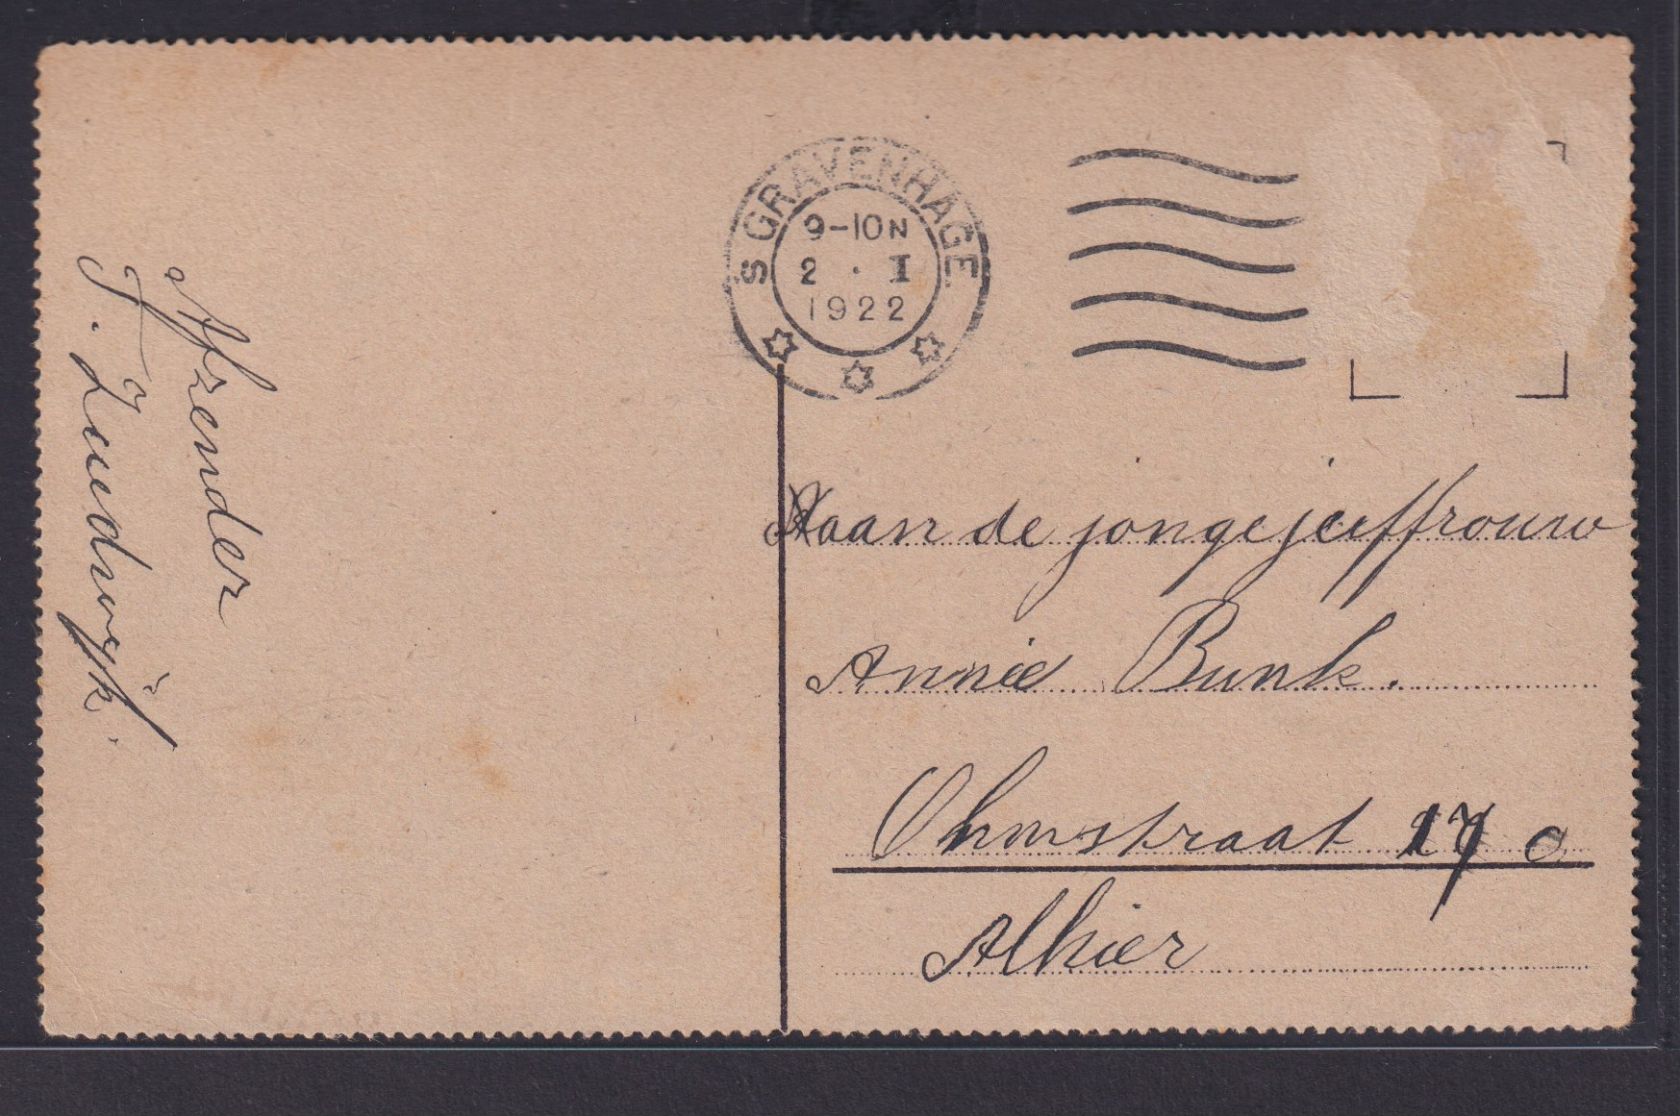 Afzender
J. Zuidwijk.
'S GRAVENHAGE
9-10N
2 . I
1922
Aan de jongejuffrouw
Annie Bunk.
Ohmstraat 17
Alhier